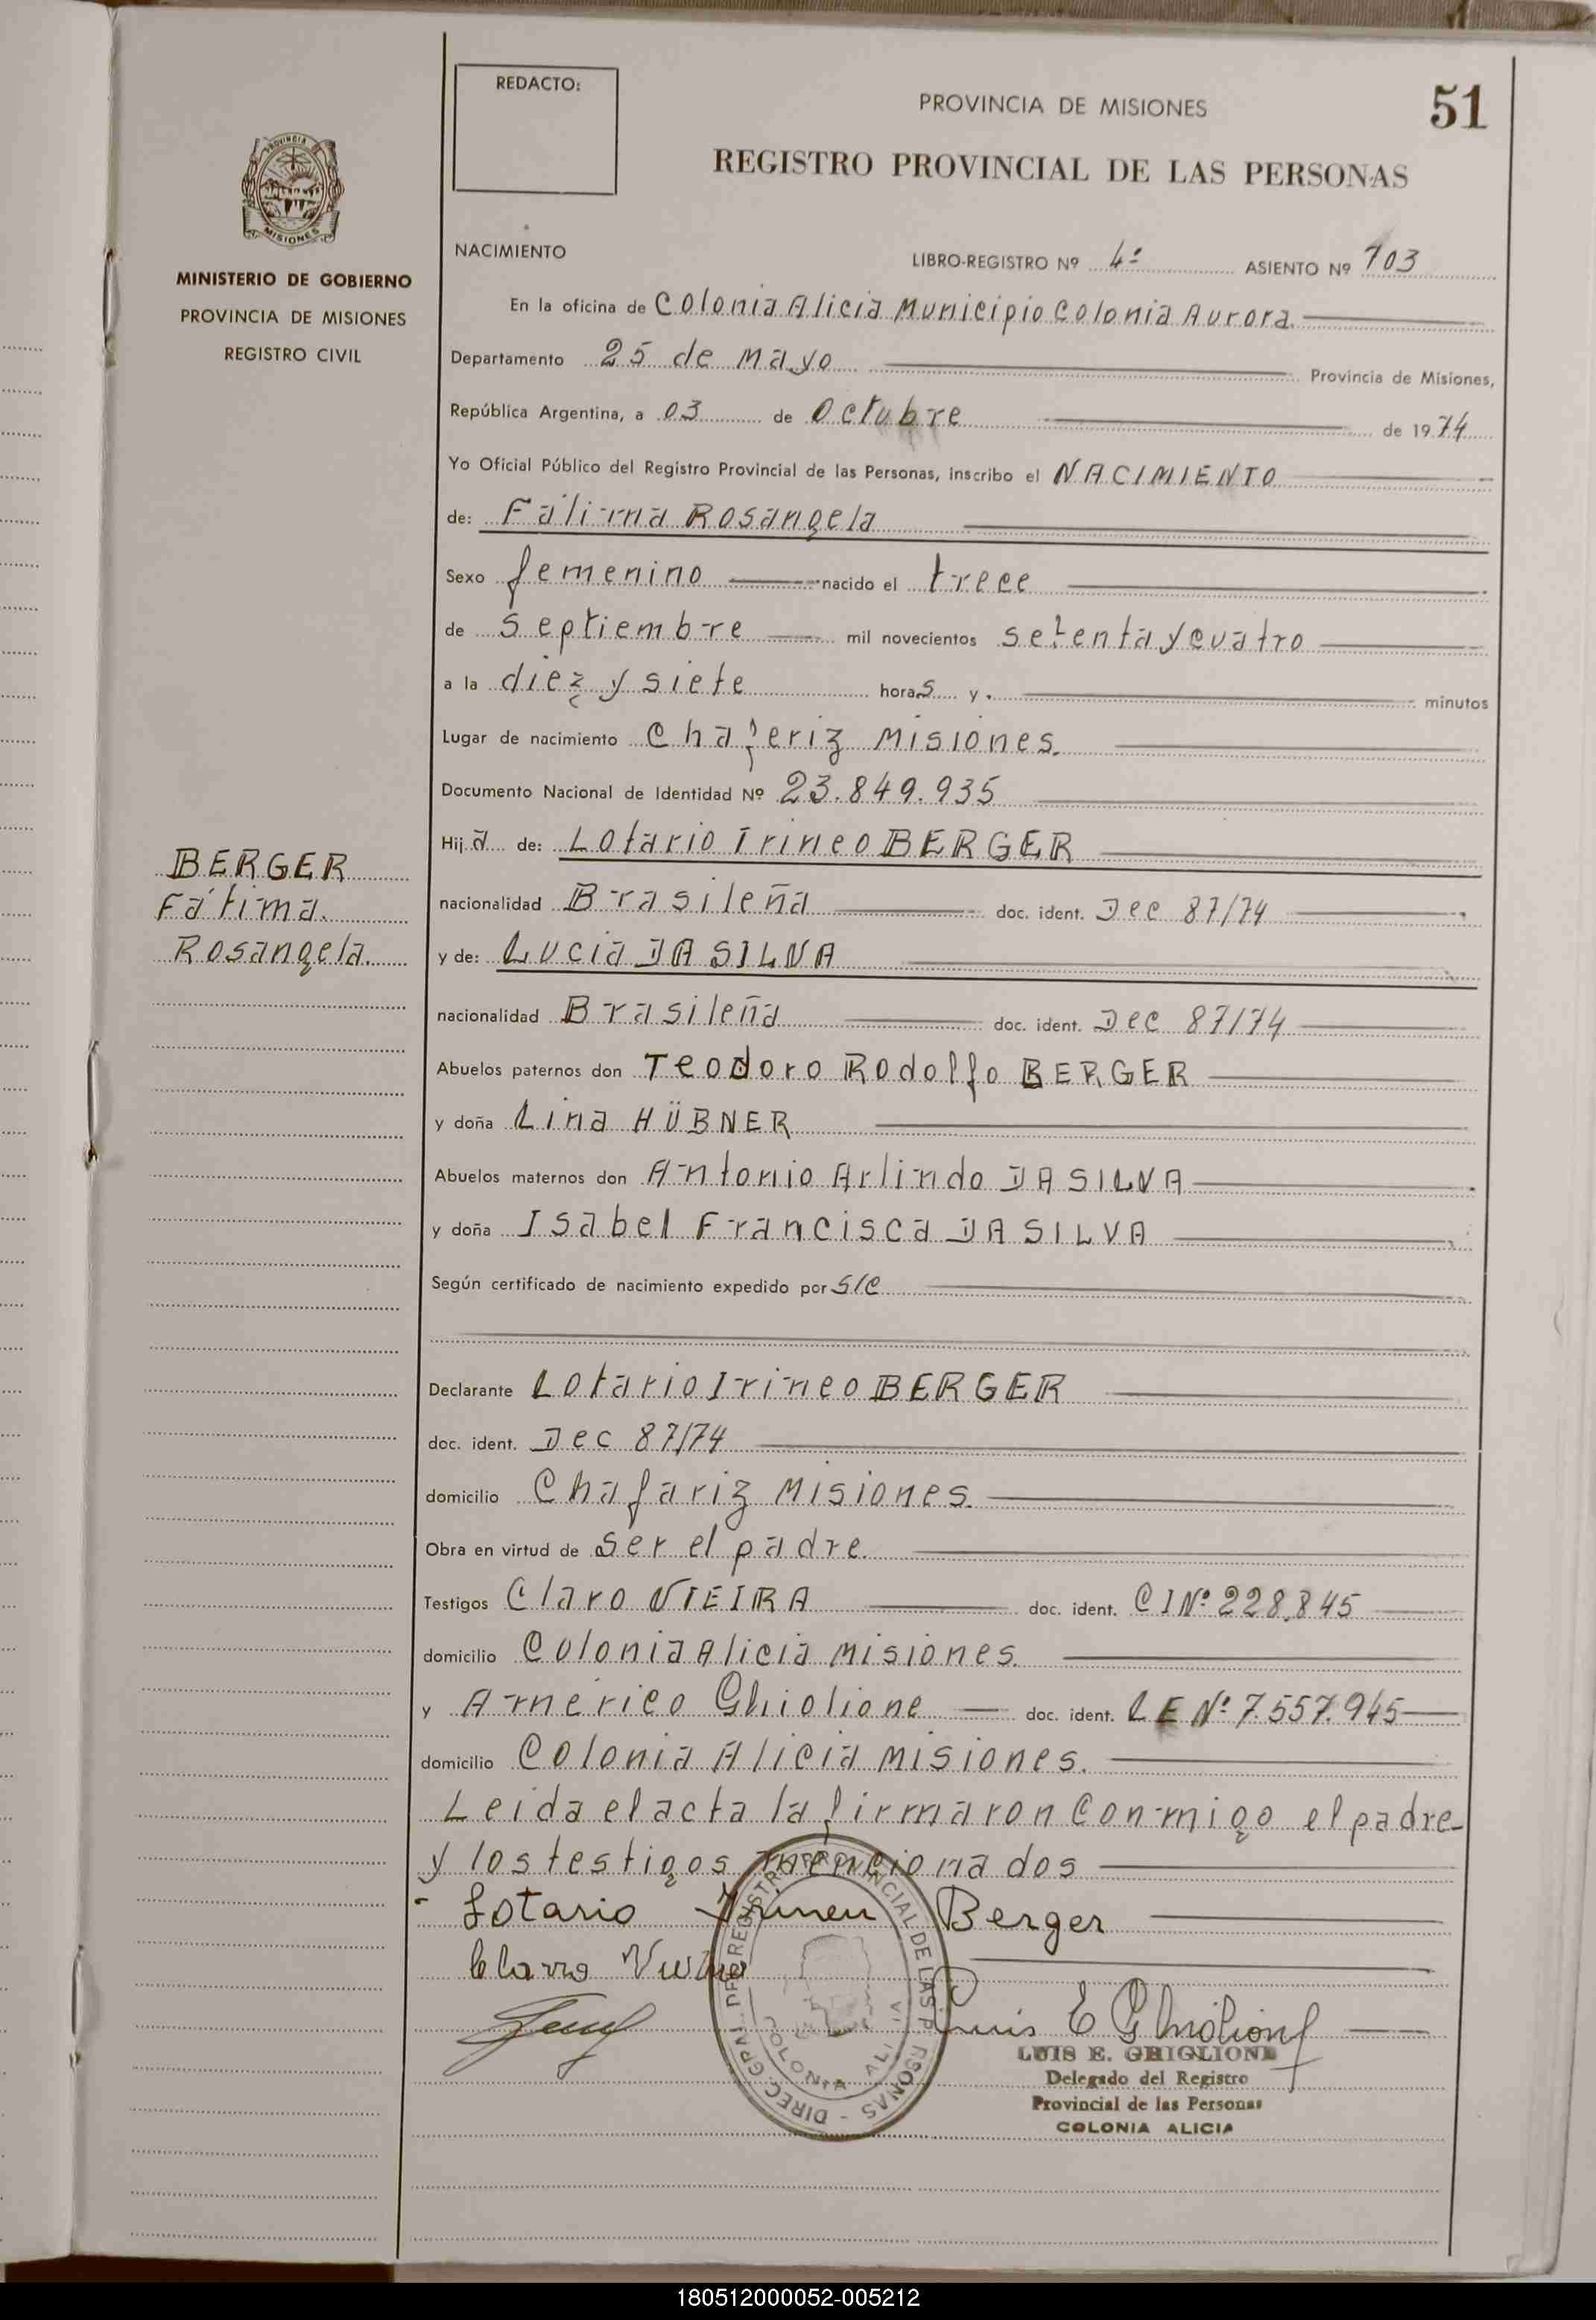 REDACTO:
PROVINCIA DE MISIONES
51
REGISTRO PROVINCIAL DE LAS PERSONAS
PROVINCIA
MISIONES
MINISTERIO DE GOBIERNO
PROVINCIA DE MISIONES
REGISTRO CIVIL
NACIMIENTO LIBRO-REGISTRO Nº 4º ASIENTO Nº 103
En la oficina de Colonia Alicia Municipio Colonia Aurora
Departamento 25 de Mayo Provincia de Misiones,
República Argentina, a 03 de Octubre de 1974
Yo Oficial Público del Registro Provincial de las Personas, inscribo el NACIMIENTO
de: Fátima Rosangela
Sexo femenino nacido el trece
de Septiembre mil novecientos setenta y cuatro
a la diez y siete horas y minutos
Lugar de nacimiento Chaferiz Misiones.
Documento Nacional de Identidad Nº 23.849.935
Hija de: Lotario Irineo BERGER
BERGER
Fátima
Rosangela.
nacionalidad Brasileña doc. ident. Dec 87/74
y de: Lucia DA SILVA
nacionalidad Brasileña doc. ident. Dec 87/74
Abuelos paternos don Teodoro Rodolfo BERGER
y doña Lina HÜBNER
Abuelos maternos don Antonio Arlindo DA SILVA
y doña Isabel Francisca DA SILVA
Según certificado de nacimiento expedido por S/C
Declarante Lotario Irineo BERGER
doc. ident. Dec 87/74
domicilio Chafariz Misiones.
Obra en virtud de ser el padre
Testigos Claro VIEIRA doc. ident. CI Nº 228.845
domicilio Colonia Alicia Misiones.
y Américo Ghiolione doc. ident. LE Nº 7.557.945
domicilio Colonia Alicia Misiones.
Leida el acta la firmaron conmigo el padre
y los testigos mencionados
Lotario Irineu Berger
Claro
Luis E Ghiglione
LUIS E. GHIGLIONE
Delegado del Registro
Provincial de las Personas
COLONIA ALICIA
DIREC. GRAL. DE REGISTRO PROVINCIAL DE LAS PERSONAS
COLONIA ALI
180512000052-005212